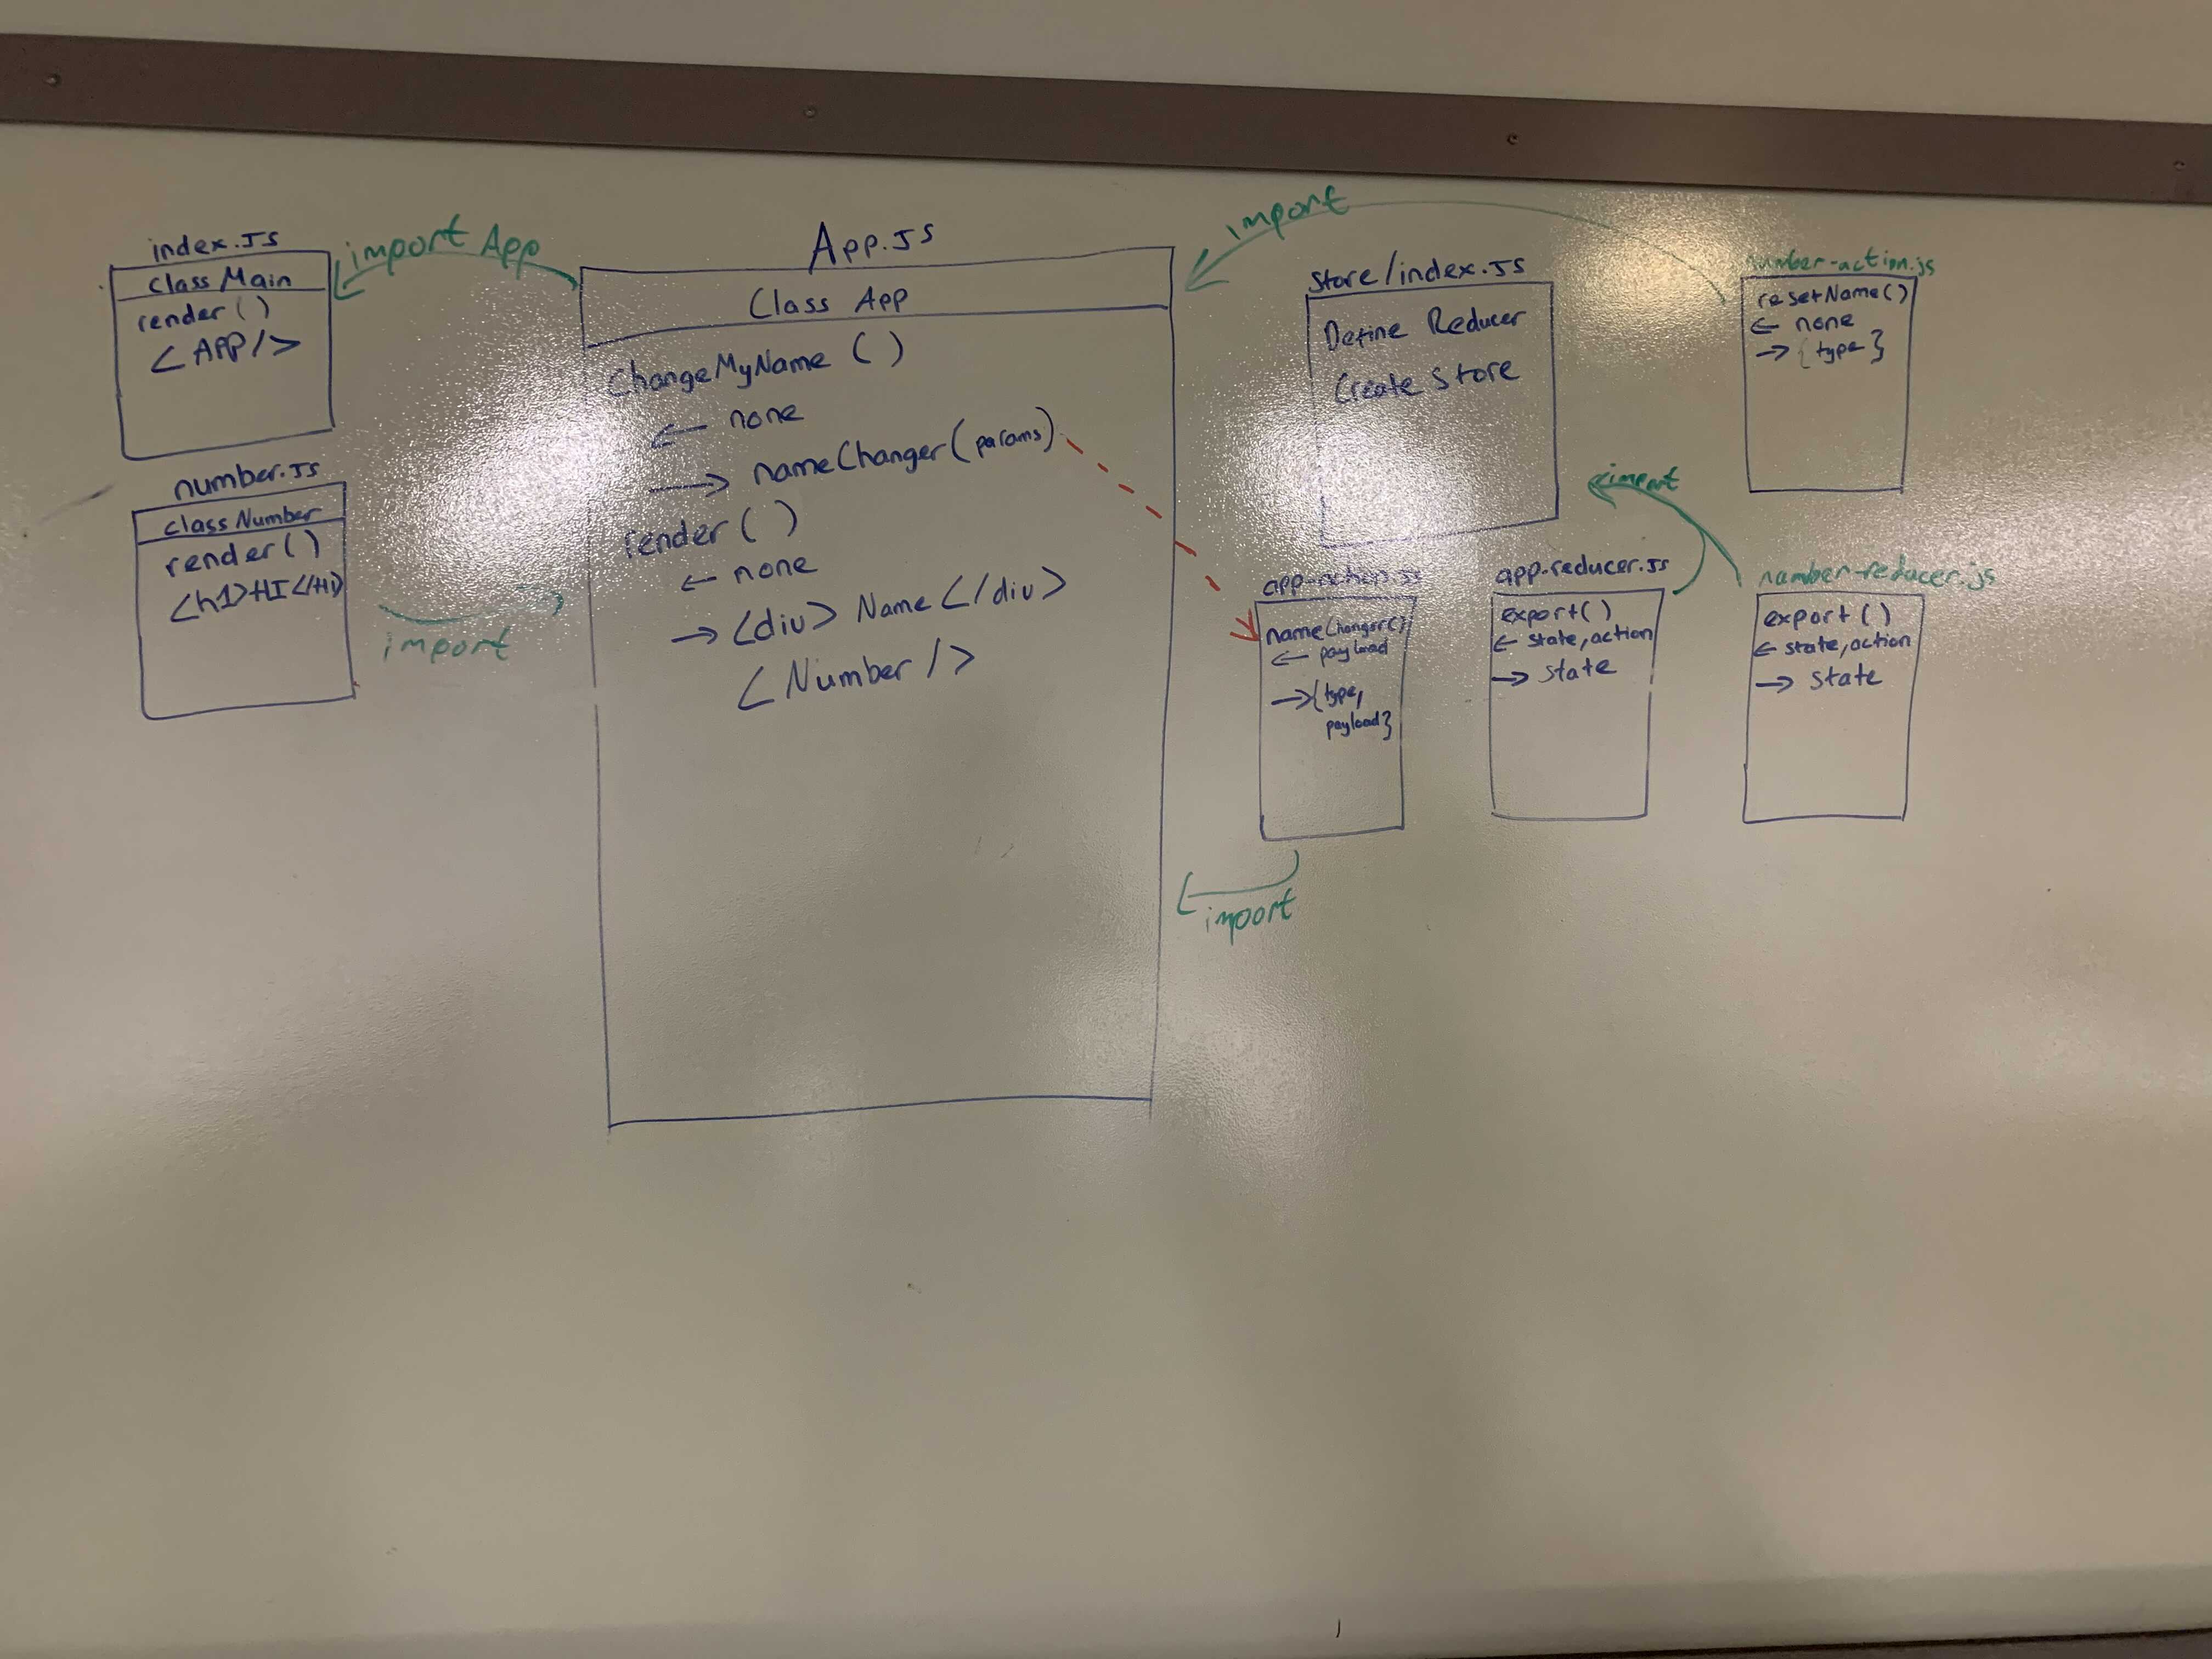 index.JS
class Main
render()
<APP/>
import App
number.JS
class Number
render()
<h1>HI</H1>
import
App.JS
Class App
ChangeMyName ()
← none
→ nameChanger(params)
render()
← none
→ <div> Name </div>
<Number/>
import
store/index.JS
Define Reducer
Create Store
number-action.js
resetName()
← none
→ {type}
import
app-action.js
nameChanger()
← payload
→ {type,
payload}
import
app-reducer.JS
export()
← state, action
→ state
number-reducer.js
export()
← state, action
→ state